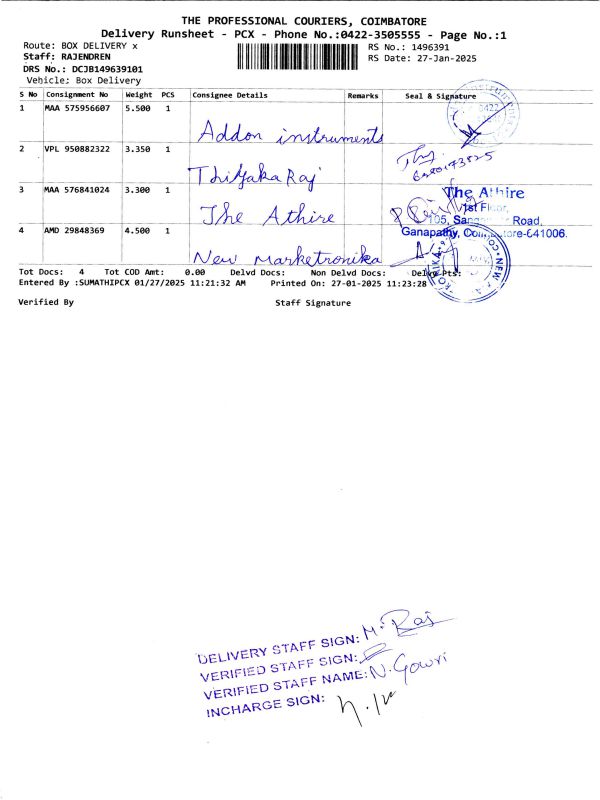 THE PROFESSIONAL COURIERS, COIMBATORE
Delivery Runsheet - PCX - Phone No.:0422-3505555 - Page No.:1
Route: BOX DELIVERY x
RS No.: 1496391
Staff: RAJENDREN
RS Date: 27-Jan-2025
DRS No.: DCJB149639101
Vehicle: Box Delivery
S No Consignment No Weight PCS Consignee Details Remarks Seal & Signature
1 MAA 575956607 5.500 1 Addon instruments
2 VPL 950882322 3.350 1 ThiyakaRaj
3 MAA 576841024 3.300 1 The Athire
The Athire
1st Floor,
105, Road,
Ganapathy, -641006.
4 AMD 29848369 4.500 1 New Marketronika
Tot Docs: 4 Tot COD Amt: 0.00 Delvd Docs: Non Delvd Docs: Delvd Pts:
Entered By :SUMATHIPCX 01/27/2025 11:21:32 AM Printed On: 27-01-2025 11:23:28
Verified By Staff Signature
DELIVERY STAFF SIGN: M. Raj
VERIFIED STAFF SIGN:
VERIFIED STAFF NAME: N. Gowri
INCHARGE SIGN: